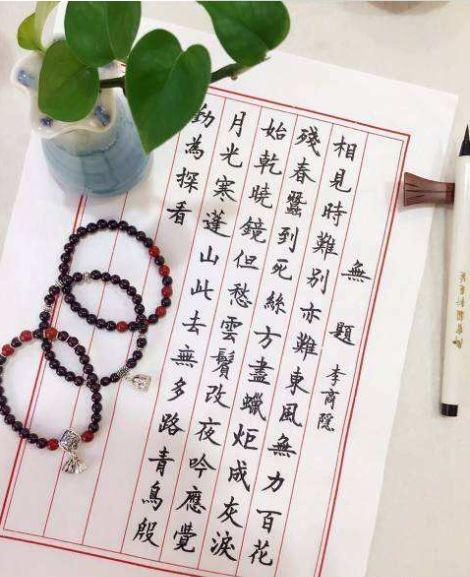 無題 李商隱
相見時難別亦難東風無力百花
殘春蠶到死絲方盡蠟炬成灰淚
始乾曉鏡但愁雲鬢改夜吟應覺
月光寒蓬山此去無多路青鳥殷
勤為探看